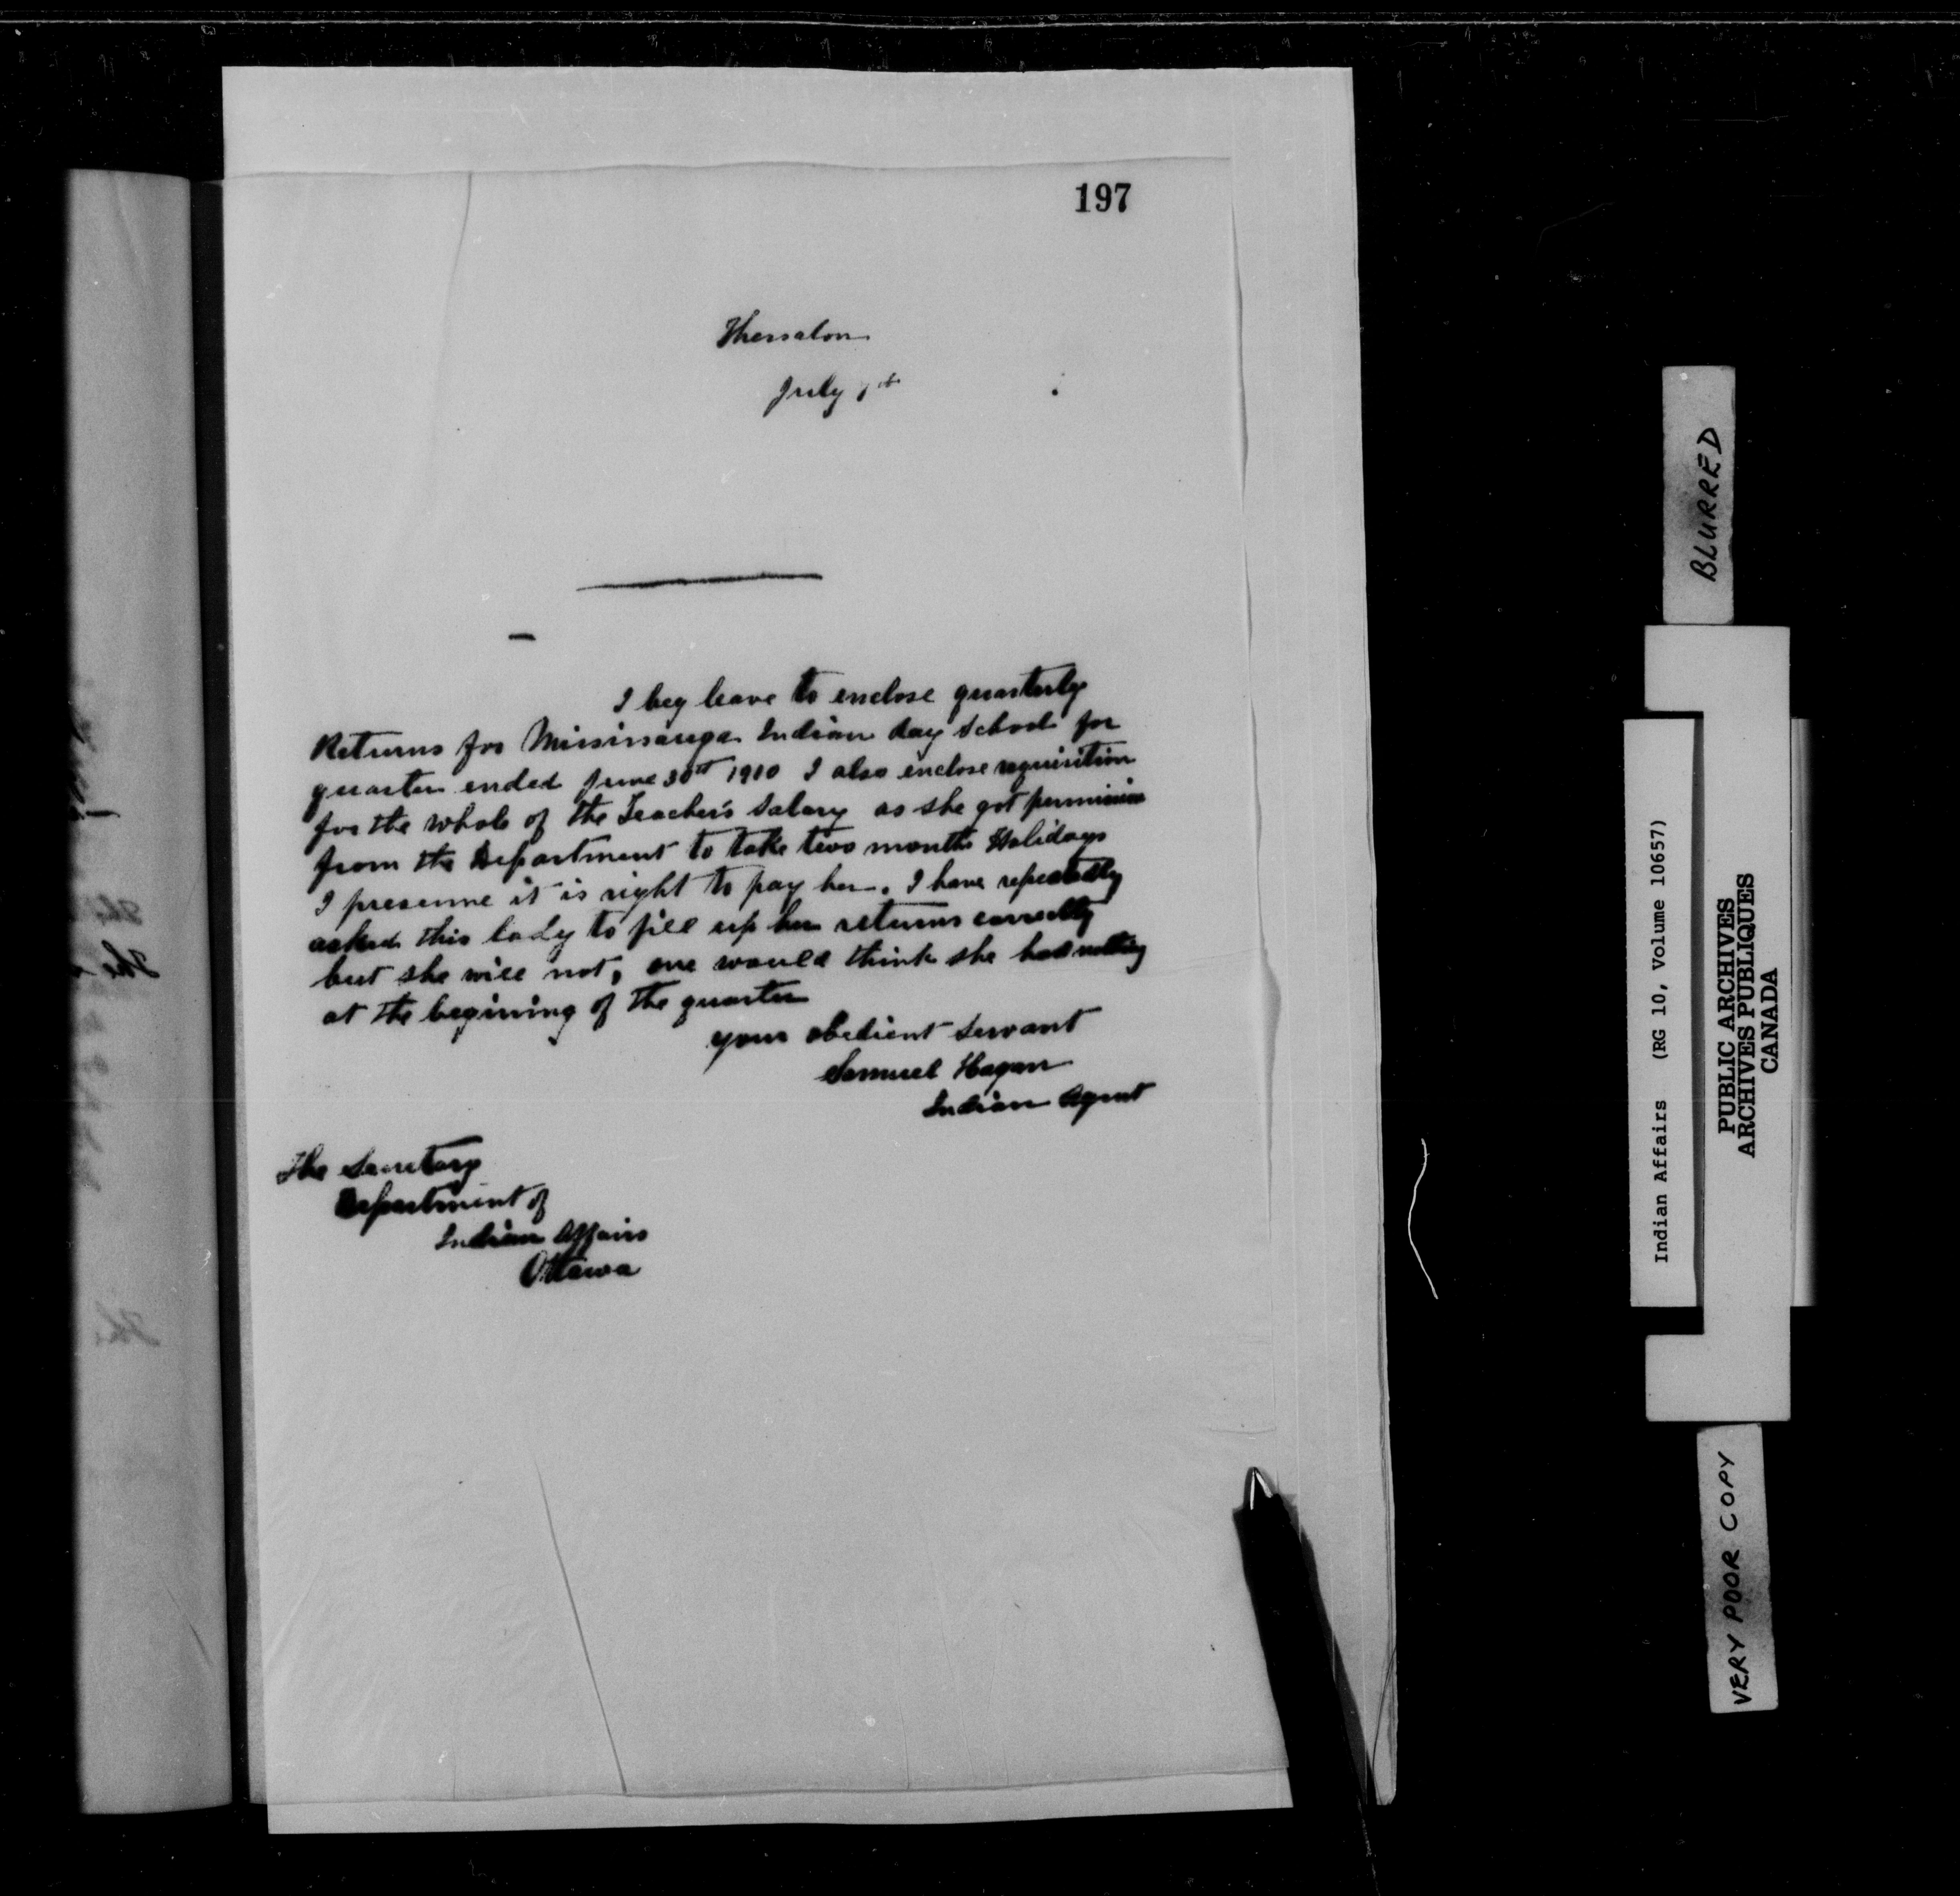 197
Thessalon
July 7th
I beg leave to enclose quarterly
Returns for Mississauga Indian day School for
quarter ended June 30th 1910 I also enclose requisition
for the whole of the Teacher's Salary as she got permission
from the Department to take two months Holidays
I presume it is right to pay her. I have repeatedly
asked this lady to fill up her returns correctly
but she will not, one would think she had nothing
at the begining of the quarter
your obedient Servant
Samuel Hagan
Indian Agent
The Secretary
Department of
Indian Affairs
Ottawa
BLURRED
Indian Affairs (RG 10, Volume 10657)
PUBLIC ARCHIVES
ARCHIVES PUBLIQUES
CANADA
VERY POOR COPY